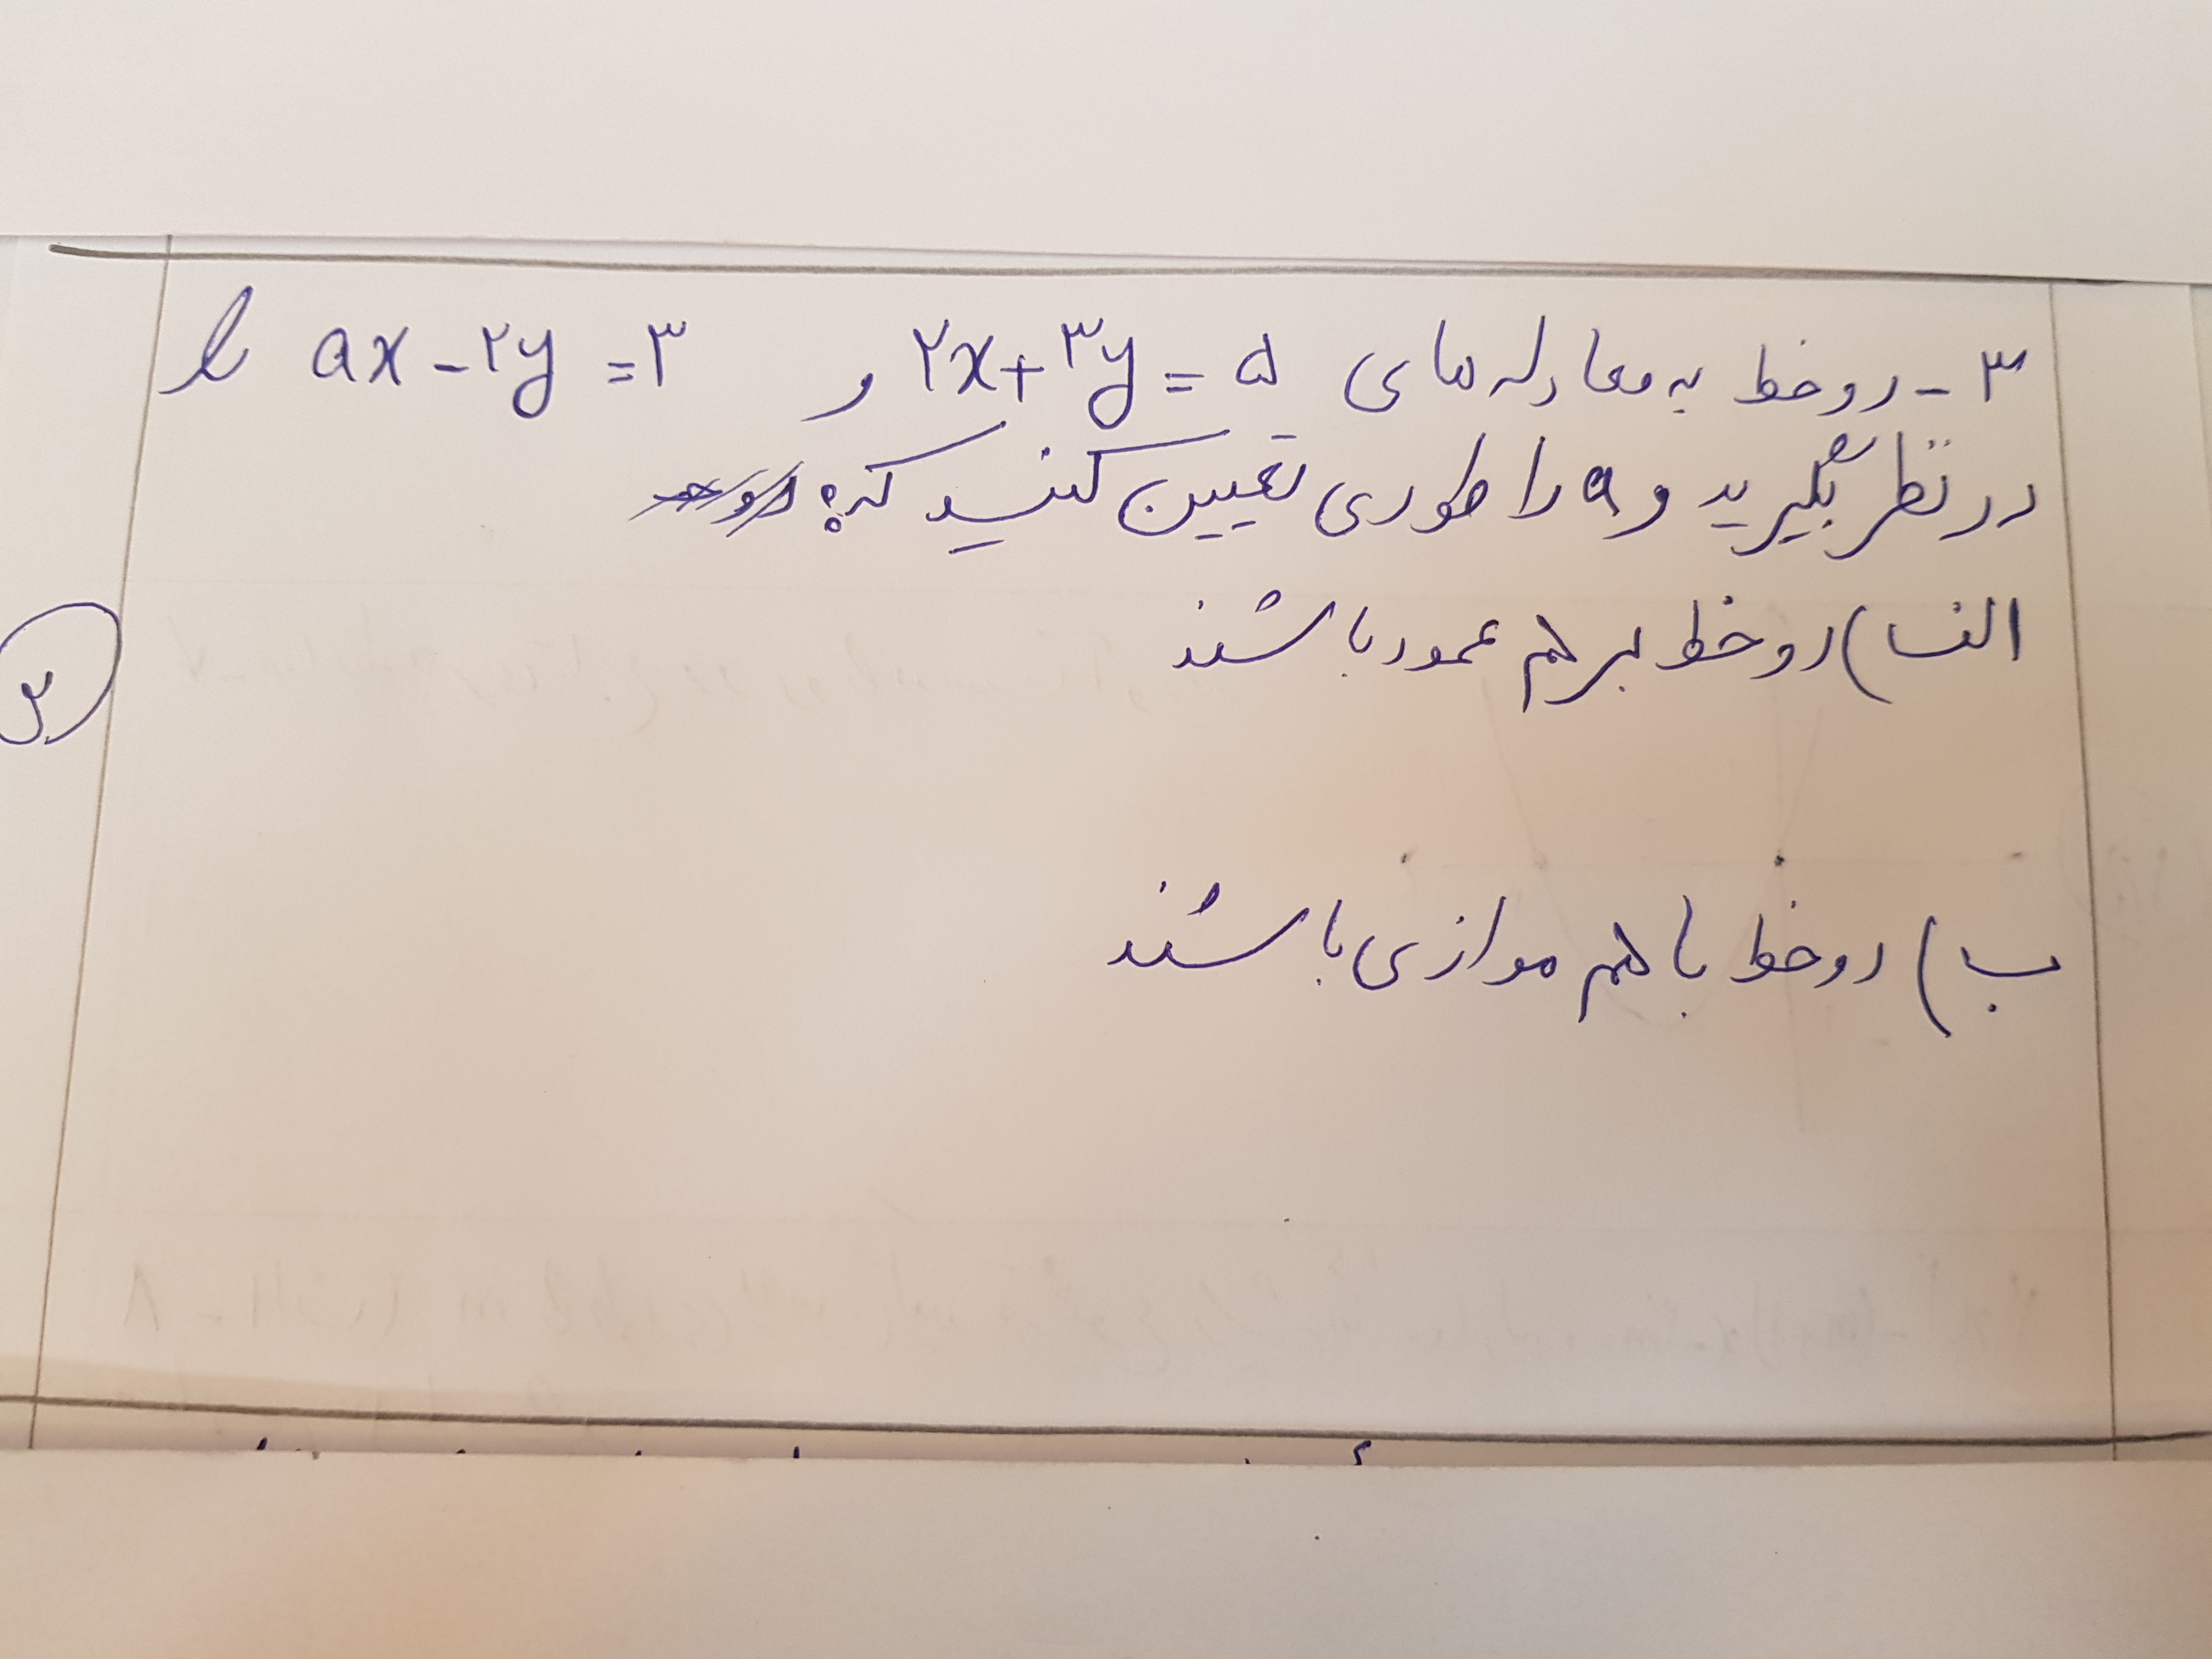 ۳- دو خط به معادله های ۲x+۳y=۵ و ax-۲y=۳ را
در نظر بگیرید و a را طوری تعیین کنید که:
الف) دو خط بر هم عمود باشند
۲
ب) دو خط با هم موازی باشند